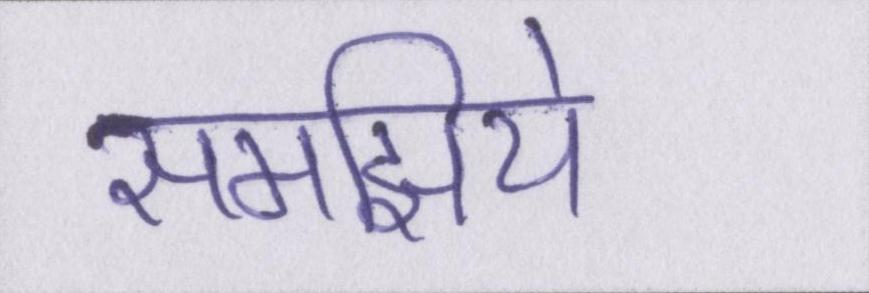 समझिये